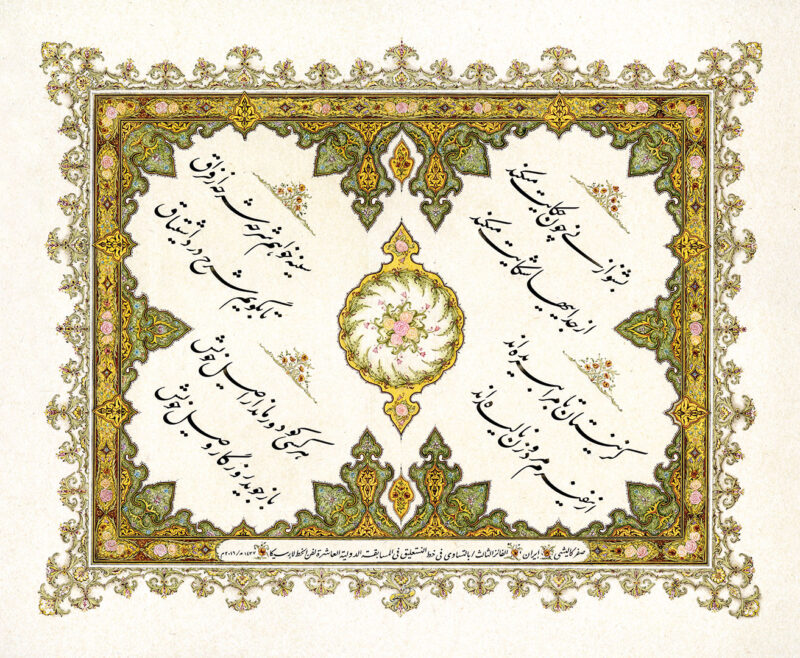 بشنو از نی چون حکایت میکند
از جداییها شکایت میکند
کز نیستان تا مرا ببریده اند
از نفیرم مرد و زن نالیده اند
سینه خواهم شرحه شرحه از فراق
تا بگویم شرح درد اشتیاق
هر کسی کو دور ماند از اصل خویش
باز جوید روزگار وصل خویش
صفر ایران الفائز الثالث / بالتساوي في خط النستعليق في المسابقة الدولية العاشرة لفن الخط لارسيكا ١٤٣٧ ه/٢٠١٦ م